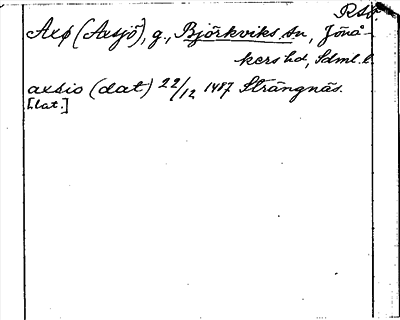 RSf.
Axø (Axsjö), g., Björkviks sn, Jönå-
kers hd, Sdml. l.
axsio (dat) 22/12 1487 Strängnäs.
[lat.]